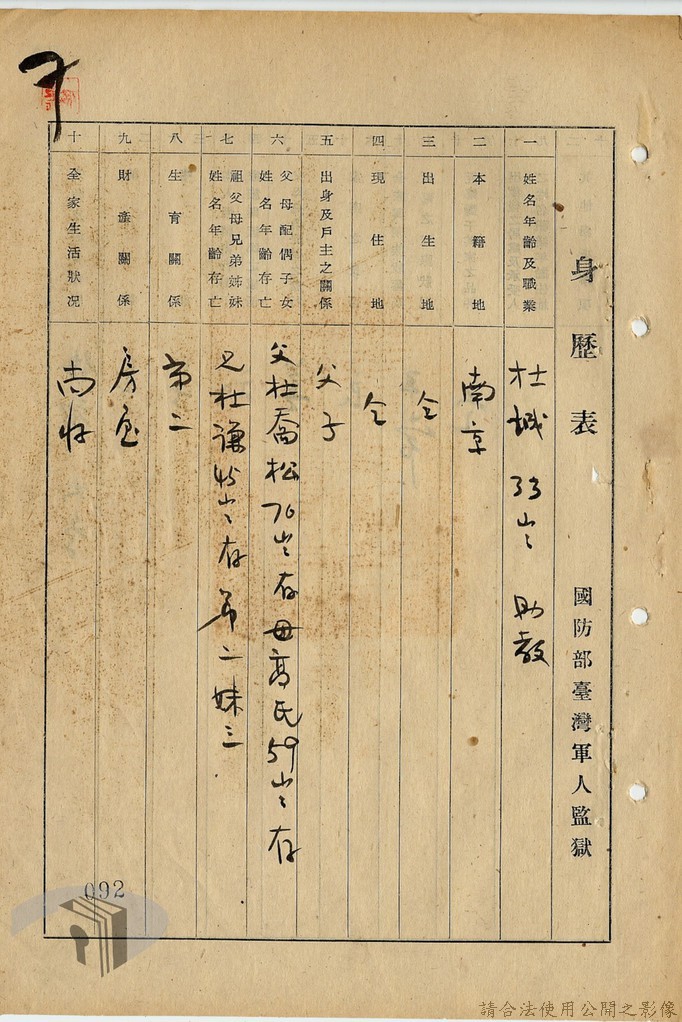 身歷表
國防部臺灣軍人監獄
一
姓名年齡及職業
杜城 33岁 助教
二
本籍地
南京
三
出生地
仝
四
現住地
仝
五
出身及戶主之關係
父子
六
父母配偶子女
姓名年齡存亡
父杜喬松70岁存 母高氏59岁存
七
祖父母兄弟姊妹
姓名年齡存亡
兄杜謙45岁存 弟二妹三
八
生育關係
第二
九
財產關係
房屋
十
全家生活狀况
尚好
092
請合法使用公開之影像